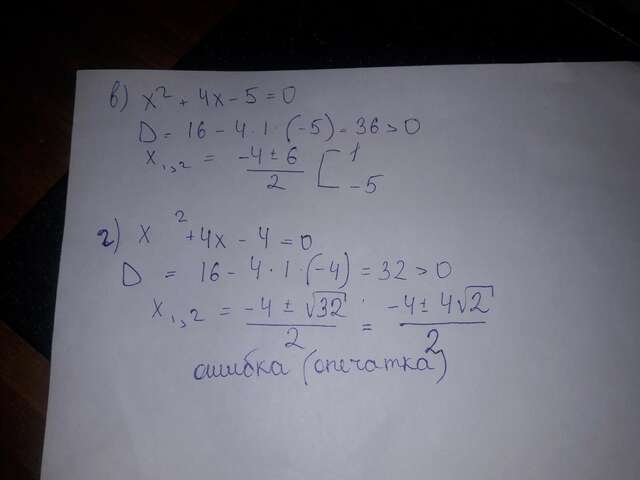 в) x² + 4x - 5 = 0
D = 16 - 4 · 1 · (-5) = 36 > 0
x₁,₂ = (-4 ± 6)/2 [ 1 -5
г) x² + 4x - 4 = 0
D = 16 - 4 · 1 · (-4) = 32 > 0
x₁,₂ = (-4 ± √32)/2 = (-4 ± 4√2)/2
ошибка (опечатка)